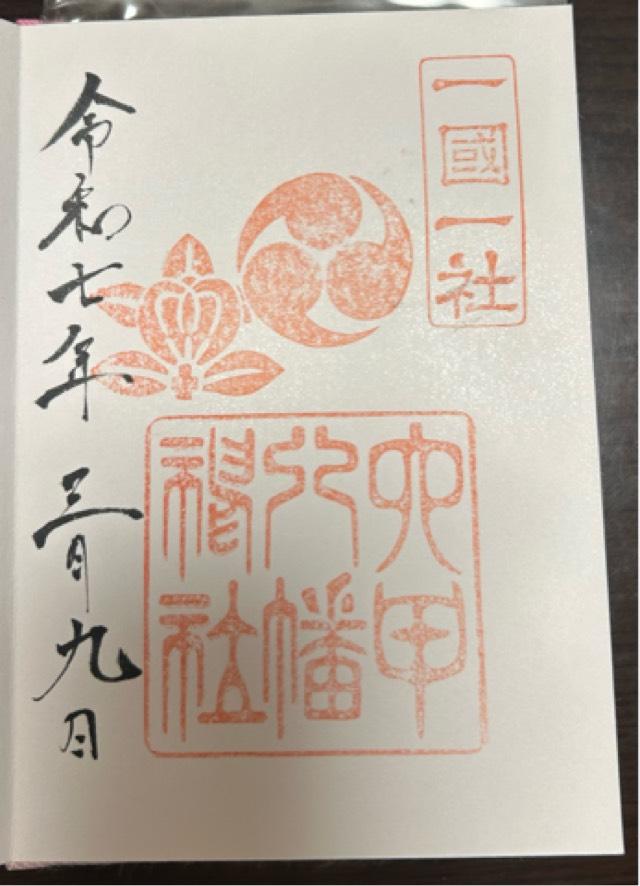 一國一社
六甲
八幡
神社
令和七年 三月九日